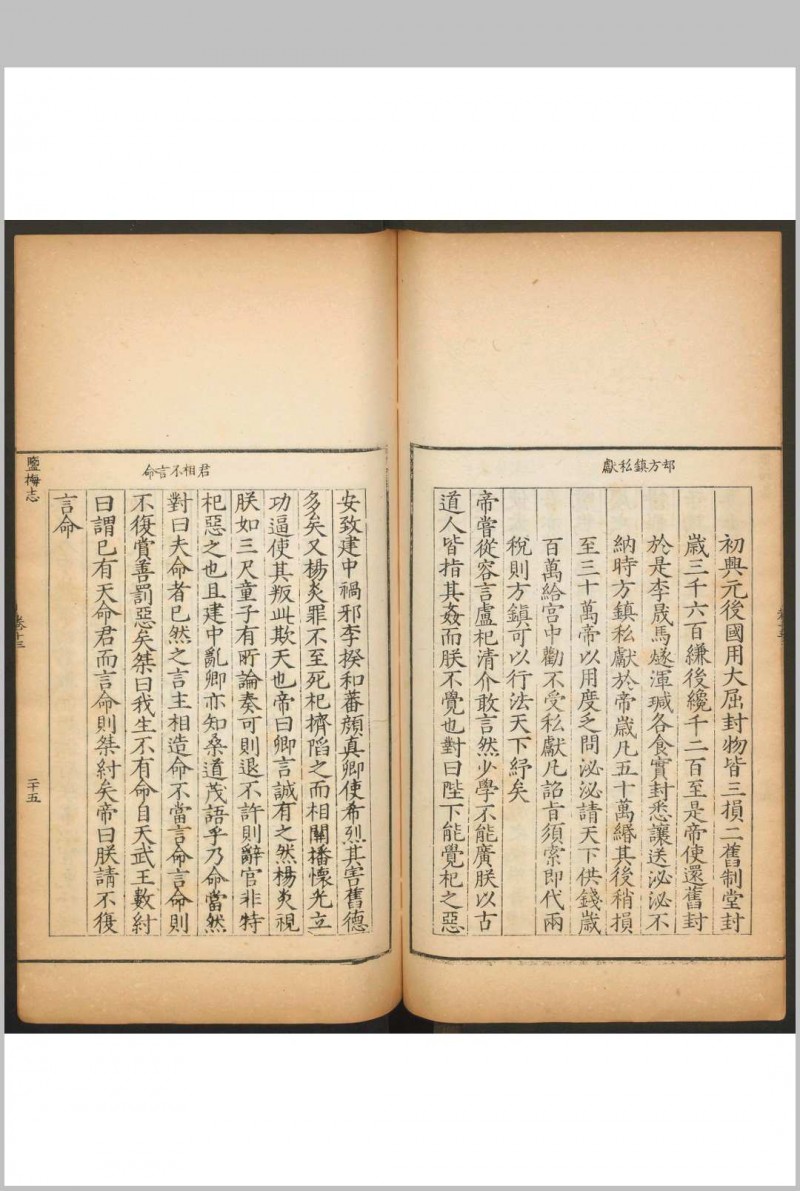 却方鎮私獻
初興元後國用大屈封物皆三損二舊制堂封
歲三千六百縑後纔千二百至是帝使還舊封
於是李晟馬燧渾瑊各食實封悉讓送泌泌不
納時方鎮私獻於帝歲凡五十萬緡其後稍損
至三十萬帝以用度乏問泌泌請天下供錢歲
百萬給宮中勸不受私獻凡詔旨須索即代兩
稅則方鎮可以行法天下紓矣
帝嘗從容言盧杞清介敢言然少學不能廣朕以古
道人皆指其姦而朕不覺也對曰陛下能覺杞之惡
君相不言命
安致建中禍邪李揆和蕃顔真卿使希烈其害舊德
多矣又楊炎罪不至死杞擠陷之而相關播懷光立
功逼使其叛此欺天也帝曰卿言誠有之然楊炎視
朕如三尺童子有所論奏可則退不許則辭官非特
杞惡之也且建中亂卿亦知桑道茂語乎乃命當然
對曰夫命者已然之言主相造命不當言命言命則
不復賞善罰惡矣桀曰我生不有命自天武王數紂
曰謂已有天命君而言命則桀紂矣帝曰朕請不復
言命
鹽梅志
卷十三
二十五